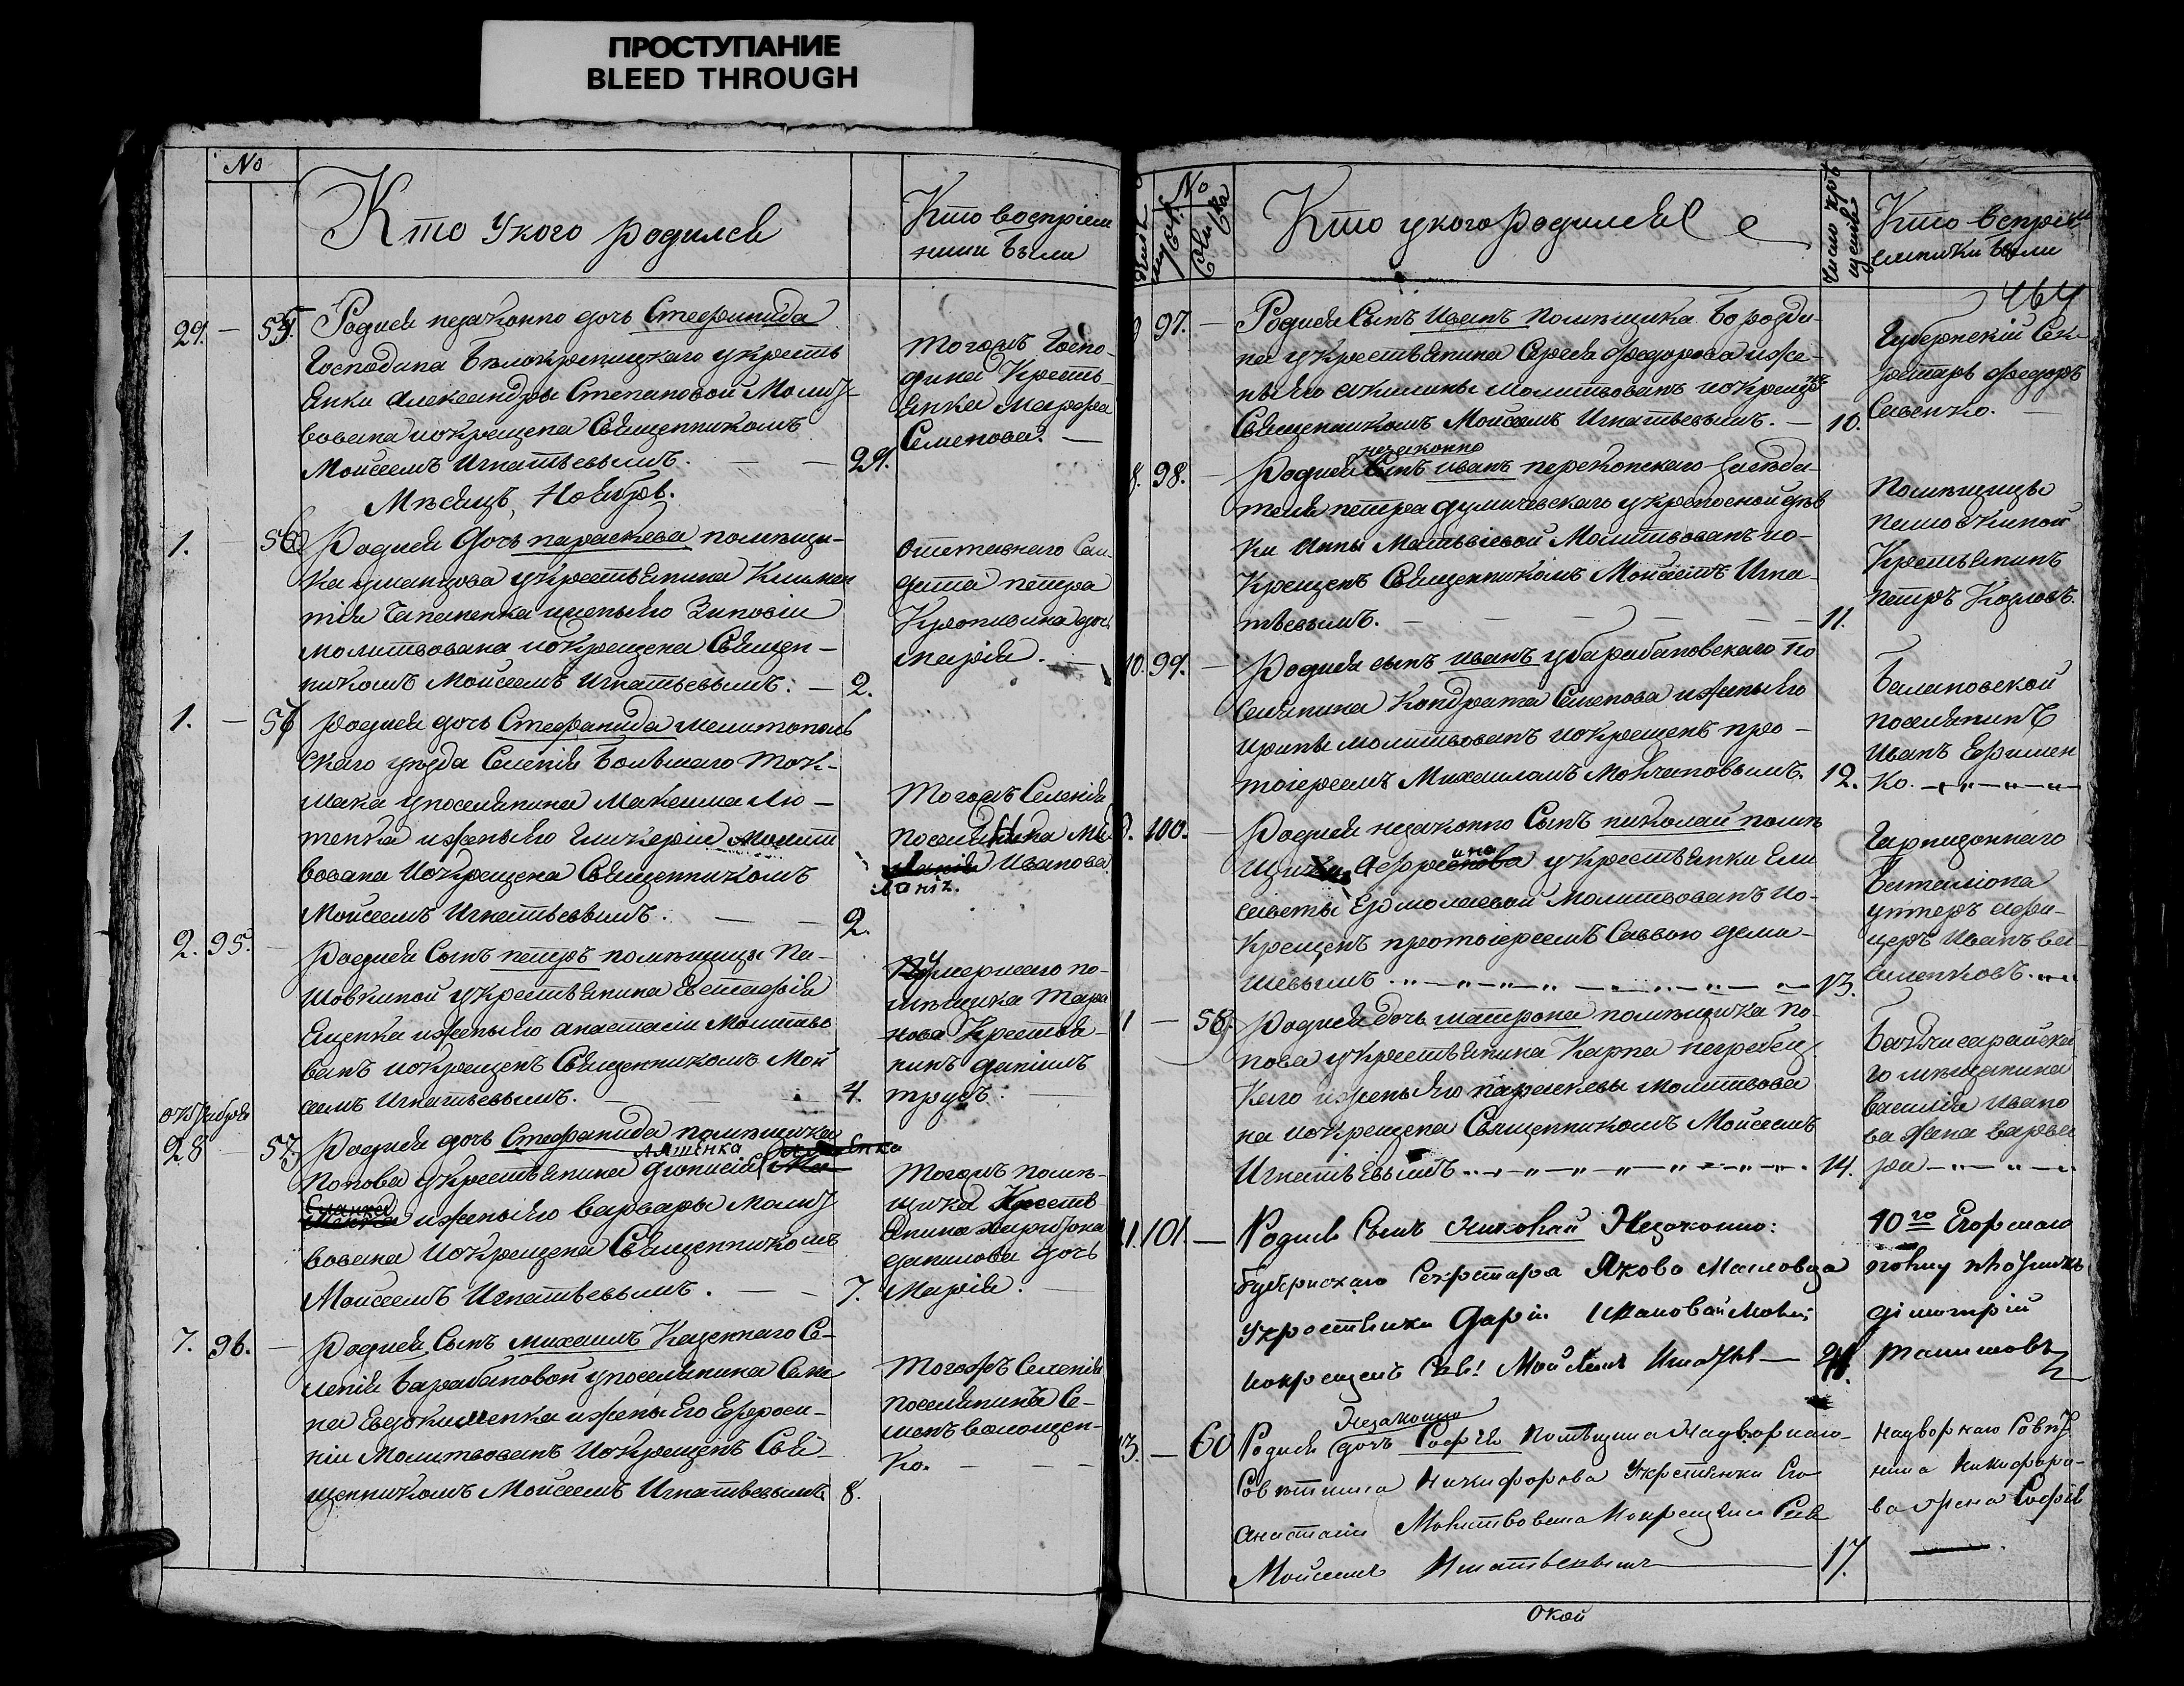 ПРОСТУПАНИЕ
BLEED THROUGH
№
Кто Укого родился
Кто воспріем
ники были
29. — 55. Родися незаконно дочь Стефанида
Господина Бѣлокреницкаго укресть
янки Александры Степановой Молит
вована иокрещена Священникомъ
Моисеемъ Игнатьевымъ. — — 29.
Тогожъ Госпо-
дина Кресть-
янка Марфа
Семенова. —
Мѣсяцъ Ноябрь.
1. — 56 Родися Дочь параскева помѣщи-
ка укрестьянина
ижены Его Зиновіи
молитвована иокрещена Священ-
никомъ Моисеемъ Игнатьевымъ: — 2.
Отставнаго Сол
дата петра
дочь
марія. —
1. — Родися дочь Стефанида мелитополь
скаго уѣзда Селенія Большаго Ток-
мака упоселянина Максима Лю-
тенка ижены Его Гликеріи Молит
вована Иокрещена Священникомъ
Моисеемъ Игнатьевымъ. — — 2.
Тогожъ Селенія
Иванова
ланія.
2. 95. — Родися Сынъ петръ помѣщицы Па-
шовкиной укрестьянина Евстафія
Ещенка ижены Его анастасіи Молитво
ванъ иокрещенъ Священникомъ Мои
сеемъ Игнатьевымъ. — — 4.
умершаго по-
мѣщика Тара
нова Крестья-
нинъ даніилъ
трубъ. —
октября
28 57 Родися дочь Стефанида помѣщика
Ляшенка
Попова укрестьянина діонисія
ижены Его варвары Молит
вована Иокрещена Священникомъ
Моисеемъ Игнатьевымъ. — — 7.
Тогожъ помѣ-
щика Кресть
янина
данилова дочь
Марія. —
7. 96. — Родися Сынъ михаилъ Казеннаго Се-
ленія Барабановой упоселянина Семе
на Евдокименка ижены Его Ефроси-
ніи Молитвованъ Иокрещенъ Свя-
щенникомъ Моисеемъ Игнатьевымъ 8.
Тогожъ Селенія
поселянинъ Се-
менъ волощен-
ко. — — —
№
Кто укого родился
Число кре
щенія
Кто воспріем
емники были
464
97. — Родися Сынъ Иванъ помѣщика Бородѣ-
на укрестьянина Сергія Федорова ижe-
ны Его акилины молитвованъ иокрещенъ
Священникомъ Моисеемъ Игнатьевымъ. — 10.
Губернскій Сек-
ретарь Федоръ
Савенко. —
незаконно
8. 98. — Родися Сынъ иванъ перекопскаго Засѣда
теля петра думичевскаго укрепосной дѣв
ки Анны Матвѣевой Молитвованъ ио-
Крещенъ Священникомъ Моисеемъ Игна-
тьевымъ. — — — — — 11.
Помѣщицы
Крестьянинъ
петръ Козловъ.
10. 99. — Родися сынъ иванъ убарабановскаго По
селянина Кондрата Семенова ижены Его
ирины молитвованъ иокрещенъ про-
тоіереемъ Михаиломъ Молчановымъ. 12.
Балановской
поселянинъ
Иванъ Ефимен
ко. — „ — „ —
100. — Родися незаконно Сынъ николай помѣ
укрестьянки Ели
саветы Ермолаевой Молитвованъ ио-
Крещенъ протоіереемъ Саввою дема-
шевымъ. „ — „ — „ — 13.
Гарнизоннаго
баталіона
унтеръ офи-
церъ Иванъ ва-
силенковъ. „
— 58. Родися дочь матрона помѣщика По-
пова укрестьянина Карпа негребец
каго ижены Его параскевы молитвова
на иокрещена Священникомъ Моисеемъ
Игнатьевымъ. „ — „ — „ — 14.
Бахчисарайска
го мѣщанина
василія Ивано
ва Жена варва
ра — „ — „
11. 101. — Родися Сынъ Николай Незаконно:
Губернскаго Секретаря Якова
Укрестьянки Даріи Ивановой Молит
иокрещенъ Свя: Моисеемъ Игнатье —
40го Егерскаго
полку
димитрій
13. — 60 Незаконно
Родися дочь Софія Помѣщика Надворнаго-
Совѣтника Никифорова Укрестьянки Его
Анастасіи Молитвована Иокрещена Свя
Моисеемъ Игнатьевымъ — 17.
Надворнаго Совѣт
ника Никифоро-
ва Жена Софія
—
Окой